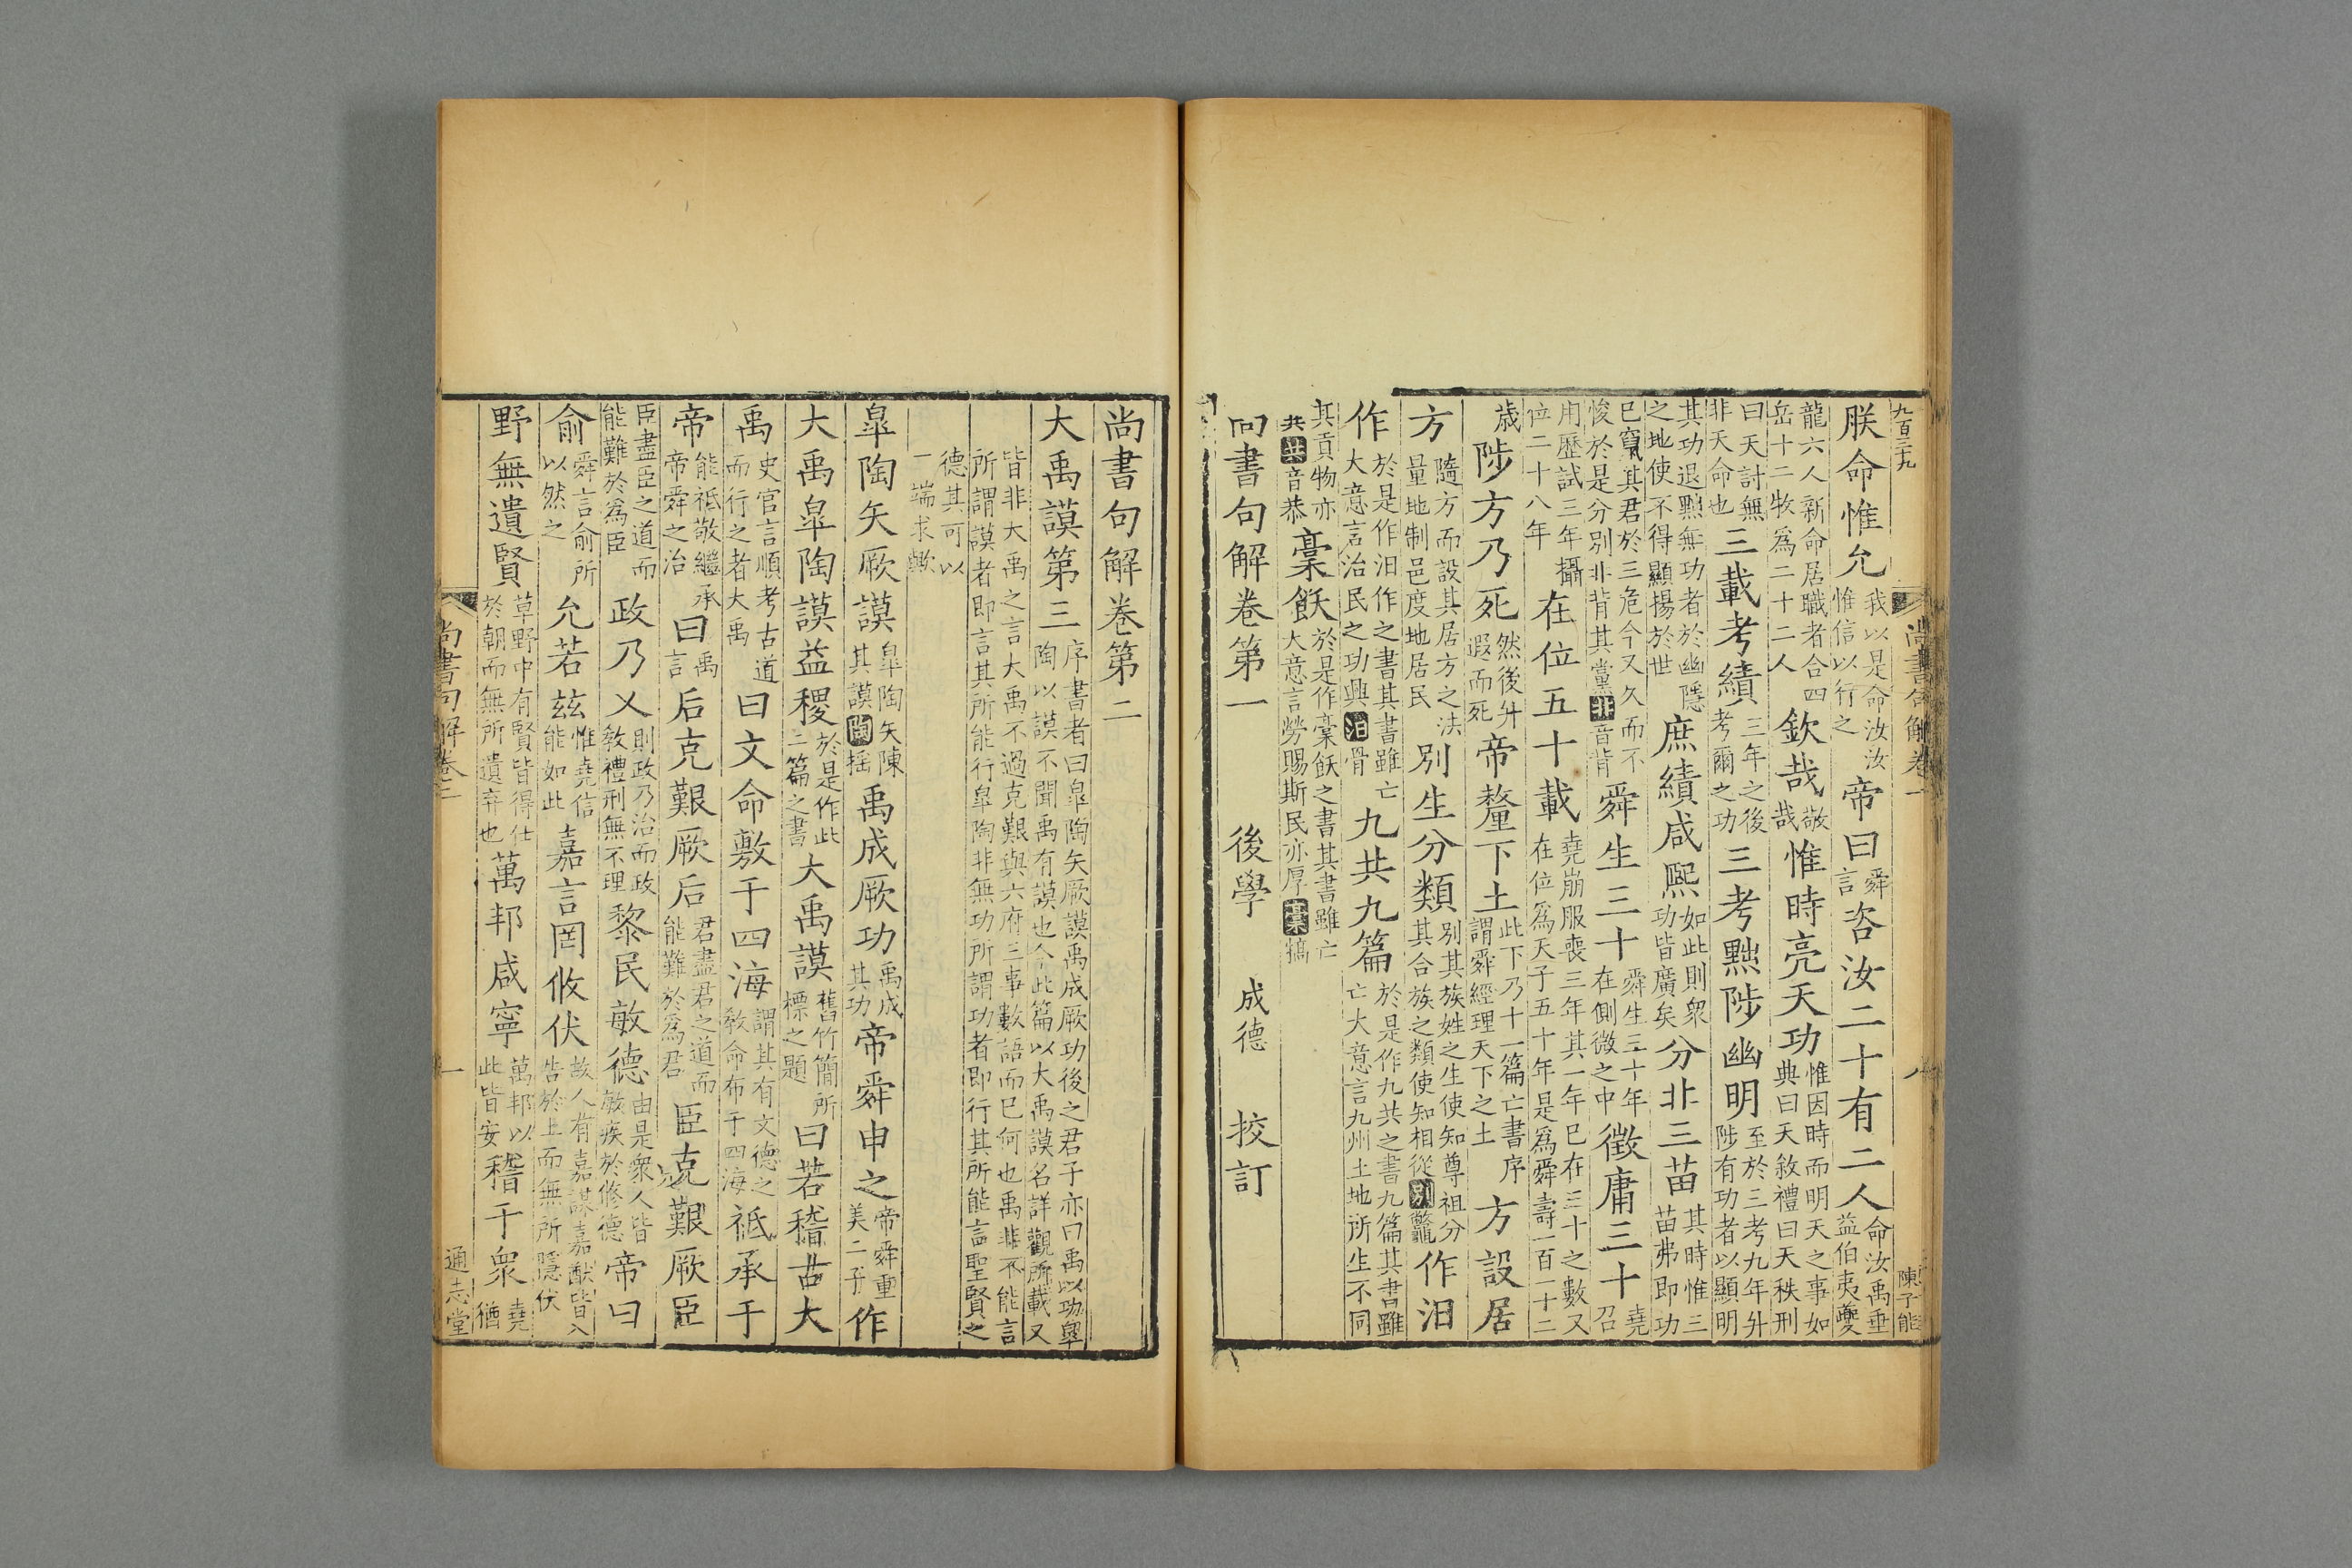 九百三十九 尚書句解卷一 八 陳子能
朕命惟允我以是命汝汝惟信以行之帝曰舜言咨汝二十有二人命汝禹垂益伯夷夔
龍六人新命居職者合四岳十二牧爲二十二人欽哉敬哉惟時亮天功惟因時而明天之事如典曰天敘禮曰天秩刑
曰天討無非天命也三載考績三年之後考爾之功三考黜陟幽明至於三考九年升陟有功者以顯明
其功退黜無功者於幽隱之地使不得顯揚於世庶績咸熙如此則衆功皆廣矣分非三苗其時惟三苗弗即功
已竄其君於三危今又久而不悛於是分別非背其黨非音背舜生三十舜生三十年在側微之中徵庸三十堯召
用歷試三年攝位二十八年在位五十載堯崩服喪三年其一年已在三十之數又在位爲天子五十年是爲舜壽一百一十二
歲陟方乃死然後升遐而死帝釐下土此下乃十一篇亡書序謂舜經理天下之土方設居
方隨方而設其居方之法量地制邑度地居民別生分類別其族姓之生使知尊祖分其合族之類使知相從別鼈作汨
作於是作汨作之書其書雖亡大意言治民之功興汨骨九共九篇於是作九共之書九篇其書雖亡大意言九州土地所生不同
其貢物亦共共音恭槀飫於是作槀飫之書其書雖亡大意言勞賜斯民亦厚槀犒
尚書句解卷第一 後學 成德 挍訂
尚書句解卷第二
大禹謨第三序書者曰皐陶矢厥謨禹成厥功後之君子亦曰禹以功皐陶以謨不聞禹有謨也今此篇以大禹謨名詳觀所載又
皆非大禹之言大禹不過克艱與六府三事數語而已何也禹非不能言所謂謨者即言其所能行皐陶非無功所謂功者即行其所能言聖賢之
德其可以一端求歟
皐陶矢厥謨皐陶矢陳其謨陶揺禹成厥功禹成其功帝舜申之帝舜重美二子作
大禹皐陶謨益稷於是作此二篇之書大禹謨舊竹簡所標之題曰若稽古大
禹史官言順考古道而行之者大禹曰文命敷于四海謂其有文德之敎命布于四海祗承于
帝能祗敬繼承帝舜之治曰禹言后克艱厥后君盡君之道而能難於爲君臣克艱厥臣
臣盡臣之道而能難於爲臣政乃乂則政乃治而政敎禮刑無不理黎民敏德由是衆人皆敏疾於修德帝曰
俞舜言俞所以然之允若兹惟堯信能如此嘉言罔攸伏故人有嘉謀嘉猷皆入告於上而無所隱伏
野無遺賢草野中有賢皆得仕於朝而無所遺弃也萬邦咸寧萬邦以此皆安稽于衆堯猶
尚書句解卷二 一 通志堂